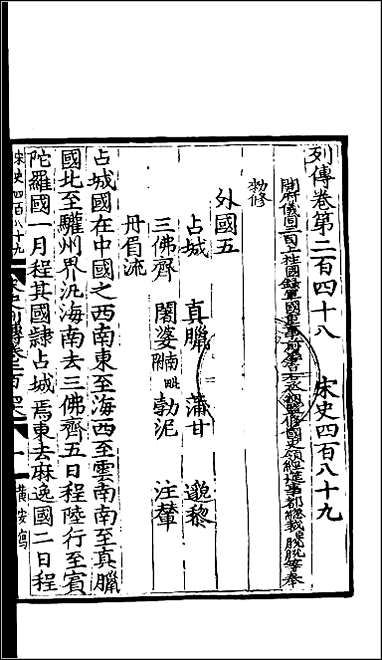 列傳卷第二百四十八　宋史四百八十九
開府儀同三司上柱國錄軍國重事前中書右丞相監修國史領經筵事都總裁脫脫等奉
勑修
外國五
占城　真臘　蒲甘　邈黎
三佛齊　闍婆南毗附　勃泥　注輦
丹眉流
占城國在中國之西南東至海西至雲南南至真臘
國北至驩州界汎海南去三佛齊五日程陸行至賓
陀羅國一月程其國隸占城焉東去麻逸國二日程
宋史四百八十九
黃安寫